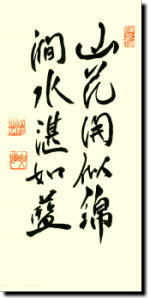 山花開似錦
澗水湛如藍